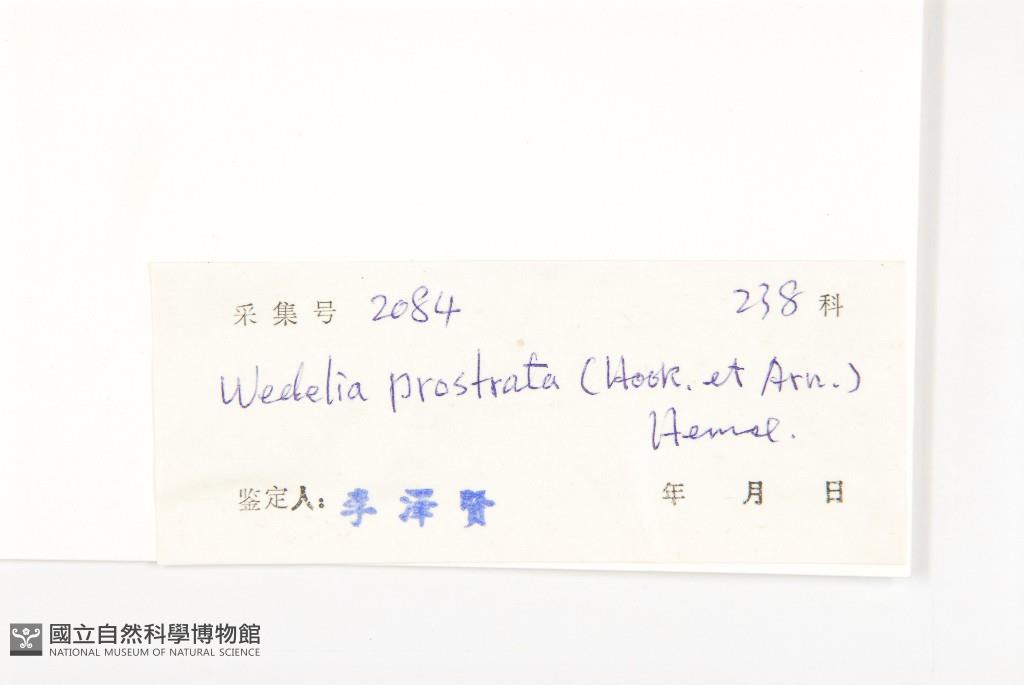 采集号 2084 238 科
Wedelia prostrata (Hook. et Arn.)
Hemsl.
鉴定人: 李泽賢 年 月 日
國立自然科學博物館
NATIONAL MUSEUM OF NATURAL SCIENCE